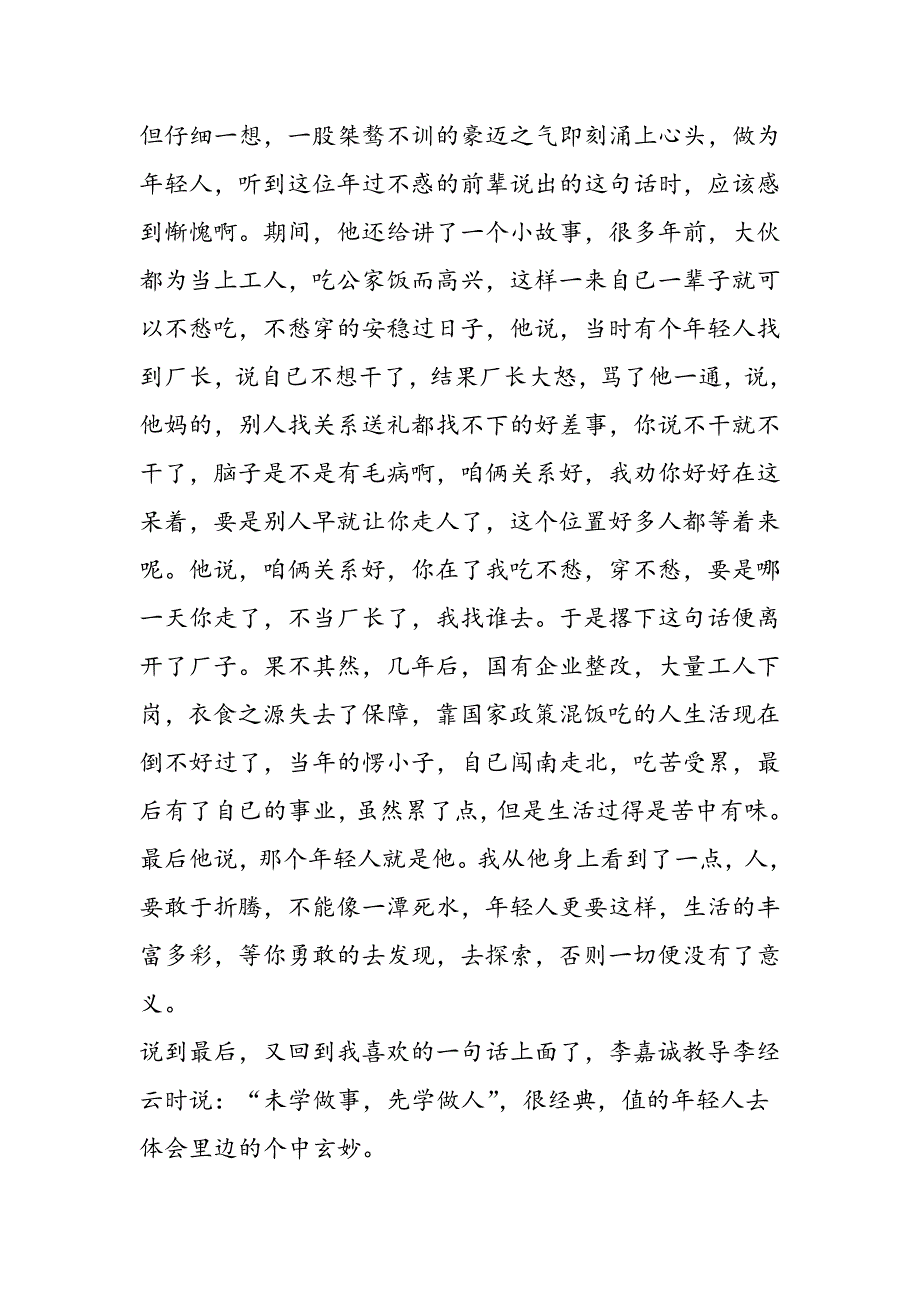 但仔细一想，一股桀骜不训的豪迈之气即刻涌上心头，做为
年轻人，听到这位年过不惑的前辈说出的这句话时，应该感
到惭愧啊。期间，他还给讲了一个小故事，很多年前，大伙
都为当上工人，吃公家饭而高兴，这样一来自已一辈子就可
以不愁吃，不愁穿的安稳过日子，他说，当时有个年轻人找
到厂长，说自已不想干了，结果厂长大怒，骂了他一通，说，
他妈的，别人找关系送礼都找不下的好差事，你说不干就不
干了，脑子是不是有毛病啊，咱俩关系好，我劝你好好在这
呆着，要是别人早就让你走人了，这个位置好多人都等着来
呢。他说，咱俩关系好，你在了我吃不愁，穿不愁，要是哪
一天你走了，不当厂长了，我找谁去。于是撂下这句话便离
开了厂子。果不其然，几年后，国有企业整改，大量工人下
岗，衣食之源失去了保障，靠国家政策混饭吃的人生活现在
倒不好过了，当年的愣小子，自已闯南走北，吃苦受累，最
后有了自已的事业，虽然累了点，但是生活过得是苦中有味。
最后他说，那个年轻人就是他。我从他身上看到了一点，人，
要敢于折腾，不能像一潭死水，年轻人更要这样，生活的丰
富多彩，等你勇敢的去发现，去探索，否则一切便没有了意
义。
说到最后，又回到我喜欢的一句话上面了，李嘉诚教导李经
云时说：“未学做事，先学做人”，很经典，值的年轻人去
体会里边的个中玄妙。